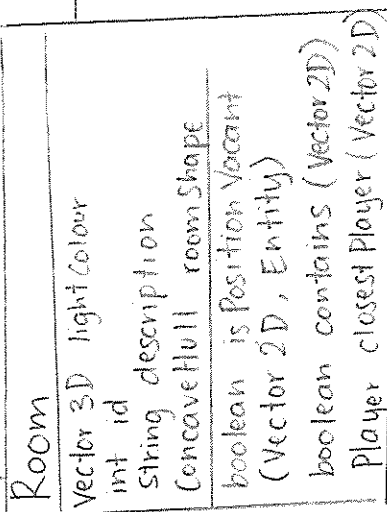 Room
Vector 3D lightColour
int id
String description
ConcaveHull roomShape
boolean isPositionVacant
(Vector 2D, Entity)
boolean contains (Vector 2D)
Player closestPlayer (Vector 2D)